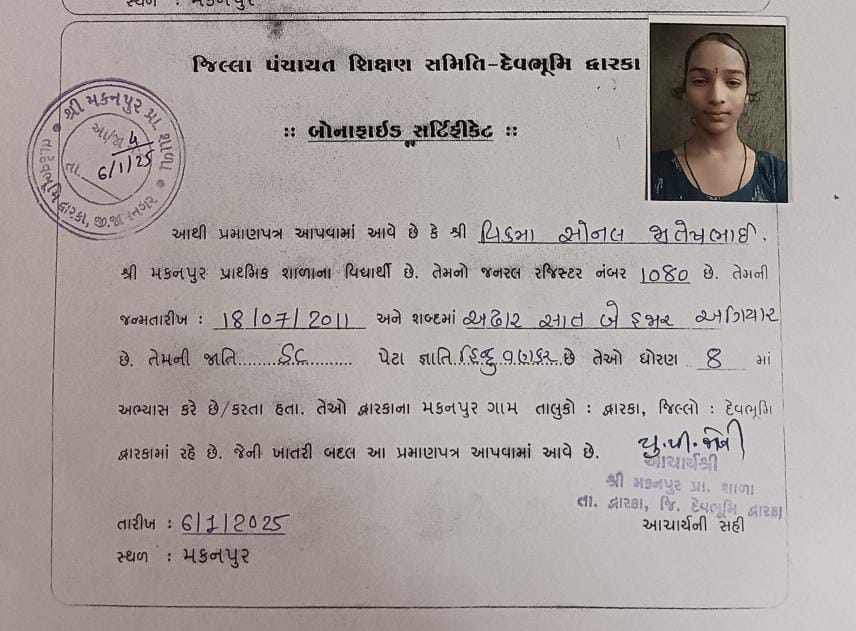 સ્થળ : મકનપુર
જિલ્લા પંચાયત શિક્ષણ સમિતિ-દેવભૂમિ દ્વારકા
:: બોનાફાઈડ સર્ટિફીકેટ ::
શ્રી મકનપુર પ્રા. શાળા
આ/જા 4
તા. 6/1/25
દેવભૂમિ દ્વારકા, જી.જામનગર
આથી પ્રમાણપત્ર આપવામાં આવે છે કે શ્રી વિકમા સોનલ
શ્રી મકનપુર પ્રાથમિક શાળાના વિદ્યાર્થી છે. તેમનો જનરલ રજિસ્ટર નંબર 1080 છે. તેમની
જન્મતારીખ : 18/07/2011 અને શબ્દમાં અઢાર સાત બે હજાર અગિયાર
છે. તેમની જાતિ....SC.......... પેટા જ્ઞાતિ.હિન્દુ વણકર.છે તેઓ ધોરણ 8 માં
અભ્યાસ કરે છે/કરતા હતા. તેઓ દ્વારકાના મકનપુર ગામ તાલુકો : દ્વારકા, જિલ્લો : દેવભૂમિ
દ્વારકામાં રહે છે. જેની ખાતરી બદલ આ પ્રમાણપત્ર આપવામાં આવે છે.
આચાર્યશ્રી
શ્રી મકનપુર પ્રા. શાળા
તા. દ્વારકા, જિ. દેવભૂમિ દ્વારકા
આચાર્યની સહી
તારીખ : 6/1/2025
સ્થળ : મકનપુર